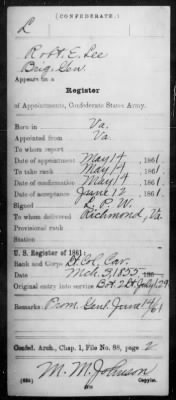 (CONFEDERATE.)
L
Robt. E. Lee
Brig. Gen.
Appears in a
Register
of Appointments, Confederate States Army.
Born in Va.
Appointed from Va.
To whom report
Date of appointment May 14, 1861.
To take rank May 14, 1861.
Date of confirmation May 14, 1861.
Date of acceptance June 12, 1861.
Signed L. P. W.
To whom delivered Richmond, Va.
Provisional rank
Station
U. S. Register of 1861:
Rank and Corps Lt. Col. Cav.
Date Mch. 3, 1855, 186
Original entry into service Bvt. 2 Lt. July 1, 29
Remarks: Prom. Genl. June 14/61
Confed. Arch., Chap. 1, File No. 88, page 2
M. M. Johnson
Copyist.